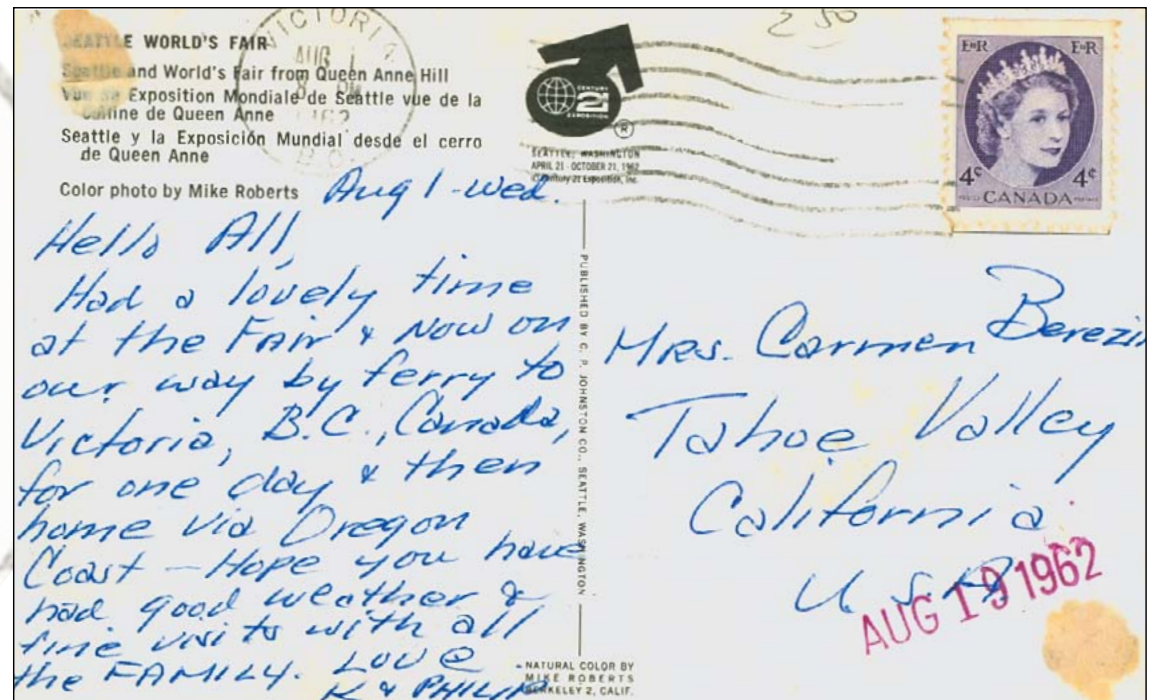 SEATTLE WORLD'S FAIR
Seattle and World's Fair from Queen Anne Hill
Vue de Exposition Mondiale de Seattle vue de la
Colline de Queen Anne
Seattle y la Exposición Mundial desde el cerro
de Queen Anne
Color photo by Mike Roberts
VICTORIA
AUG 1
8 PM
1962
B.C.
CENTURY
21
EXPOSITION
®
SEATTLE, WASHINGTON
APRIL 21 - OCTOBER 21, 1962
© Century 21 Exposition, Inc.
250
E II R E II R
4¢ 4¢
CANADA
Aug 1 - Wed.
Hello All,
Had a lovely time
at the FAIR & NOW on
our way by ferry to
Victoria, B.C., Canada,
for one day & then
home via Oregon
Coast - Hope you have
had good weather &
fine visits with all
the FAMILY. LOVE
K & PHILIP
PUBLISHED BY C. P. JOHNSTON CO., SEATTLE, WASHINGTON
NATURAL COLOR BY
MIKE ROBERTS
BERKELEY 2, CALIF.
MRS. Carmen Berezin
Tahoe Valley
California
U.S.A
AUG 19 1962